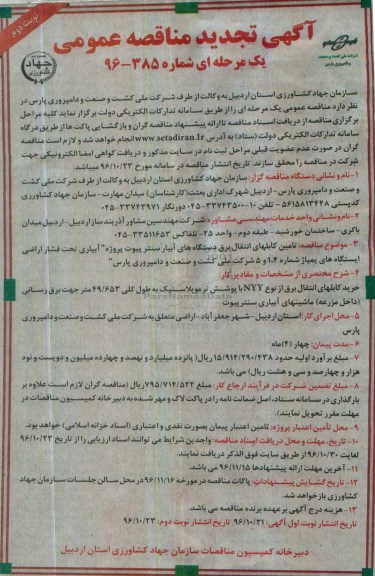 نوبت دوم
آگهی تجدید مناقصه عمومی
یک مرحله ای شماره ۳۸۵-۹۶
جهاد
سازمان جهاد کشاورزی استان اردبیل به وکالت از طرف شرکت ملی کشت و صنعت و دامپروری پارس در
نظر دارد مناقصه عمومی یک مرحله ای را از طریق سامانه تدارکات الکترونیکی دولت برگزار نماید کلیه مراحل
برگزاری مناقصه از دریافت اسناد مناقصه تا ارائه پیشنهاد مناقصه گران و بازگشایی پاکت ها از طریق درگاه
سامانه تدارکات الکترونیکی دولت (ستاد) به آدرس www.setadiran.ir انجام خواهد شد و لازم است مناقصه
گران در صورت عدم عضویت قبلی مراحل ثبت نام در سایت مذکور و دریافت گواهی امضا الکترونیکی جهت
شرکت در مناقصه را محقق سازند. تاریخ انتشار مناقصه در سامانه مورخ ۹۶/۱۰/۲۳ میباشد.
۱- نام و نشانی دستگاه مناقصه گزار: سازمان جهاد کشاورزی استان اردبیل به وکالت از طرف شرکت ملی کشت
و صنعت و دامپروری پارس - اردبیل شهرک اداری بعثت (کارشناسان) میدان مهارت - سازمان جهاد کشاورزی
کدپستی ۵۶۱۵۸۱۳۴۴۸ - تلفن ۱۰-۳۳۷۴۳۵۰۰-۰۴۵ دورنگار ۳۳۷۴۳۹۷۱-۰۴۵
۲- نام و نشانی واحد خدمات مهندسی مشاوره: شرکت مهندسین مشاور آذربند ساز اردبیل - اردبیل میدان
باکری - ساختمان خورشید - طبقه دوم - واحد ۲۵ - تلفاکس ۳۳۵۱۱۶۵۳-۰۴۵
۳- موضوع مناقصه: تامین کابلهای انتقال برق دستگاه های آبیار سنتر پیوت پروژه" آبیاری تحت فشار اراضی
ایستگاه های پمپاژ شماره ۱،۴ و ۵ شرکت ملی کشت و صنعت و دامپروری پارس"
۴- شرح مختصری از مشخصات و مقادیر کار:
خرید کابلهای انتقال برق از نوع NYY با پوشش ترموپلاستیک به طول کلی ۴۹/۶۵۳ متر جهت برق رسانی
(داخل مزرعه) ماشینهای آبیاری سنتر پیوت
۵- محل اجرای کار: استان اردبیل - شهر جعفر آباد - اراضی متعلق به شرکت ملی کشت و صنعت و دامپروری
پارس
۶- مدت پیمان: چهار (۴) ماه
۷- مبلغ برآورد اولیه حدود ۱۵/۹۱۴/۲۹۰/۴۳۸ ریال( پانزده میلیارد و نهصد و چهارده میلیون و دویست و نود
هزار و چهارصد و سی و هشت ریال) می باشد.
۸- مبلغ تضمین شرکت در فرآیند ارجاع کار: مبلغ ۷۹۵/۷۱۴/۵۲۲ ریال (مناقصه گران لازم است علاوه بر
بارگذاری در سامانه ستاد، اصل ضمانت نامه را در پاکت لاک و مهر شده به دبیرخانه کمیسیون مناقصات در
مهلت مقرر تحویل نمایند).
۹- محل تأمین اعتبار پروژه: تامین اعتبار پیمان بصورت نقدی و اعتباری (اسناد خزانه اسلامی) خواهد بود.
۱۰- تاریخ، مهلت و محل دریافت اسناد مناقصه: واجدین شرایط می توانند اسناد ارزیابی را از تاریخ ۹۶/۱۰/۲۳
لغایت ۹۶/۱۰/۳۰ از طریق سایت فوق الذکر دریافت نمایند.
۱۱- آخرین مهلت ارائه پیشنهادها ۹۶/۱۱/۱۵ می باشد.
۱۲- تاریخ گشایش پیشنهادات: پاکات مناقصه در مورخه ۹۶/۱۱/۱۶ در محل سالن جلسات سازمان جهاد
کشاورزی باز خواهد شد.
۱۳- هزینه درج آگهی بر عهده برنده مناقصه می باشد.
تاریخ انتشار نوبت اول آگهی: ۹۶/۱۰/۲۱ تاریخ انتشار نوبت دوم: ۹۶/۱۰/۲۳
دبیرخانه کمیسیون مناقصات سازمان جهاد کشاورزی استان اردبیل